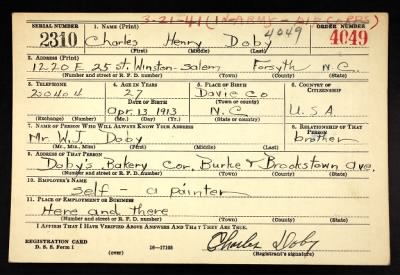 3-21-41 (IN ARMY - AIR CORPS)
SERIAL NUMBER 1. NAME (Print) ORDER NUMBER
2310 Charles Henry Doby 4049 4049
(First) (Middle) (Last)
2. ADDRESS (Print)
1220 E 25 st. Winston-Salem Forsyth N.C.
(Number and street or R. F. D. number) (Town) (County) (State)
3. TELEPHONE 4. AGE IN YEARS 5. PLACE OF BIRTH 6. COUNTRY OF CITIZENSHIP
20404 27 Davie Co
DATE OF BIRTH (Town or county)
Apr. 13 1913 N.C. U.S.A.
(Exchange) (Number) (Mo.) (Day) (Yr.) (State or country)
7. NAME OF PERSON WHO WILL ALWAYS KNOW YOUR ADDRESS 8. RELATIONSHIP OF THAT PERSON
Mr. W. J. Doby brother
(Mr., Mrs., Miss) (First) (Middle) (Last)
9. ADDRESS OF THAT PERSON
Doby's Bakery Cor. Burke & Brookstown ave.
(Number and street or R. F. D. number) (Town) (County) (State)
10. EMPLOYER'S NAME
Self - a painter
11. PLACE OF EMPLOYMENT OR BUSINESS
Here and there
(Number and street or R. F. D. number) (Town) (County) (State)
I AFFIRM THAT I HAVE VERIFIED ABOVE ANSWERS AND THAT THEY ARE TRUE.
REGISTRATION CARD
D. S. S. Form 1 16-17105 Charles Doby
(Registrant's signature)